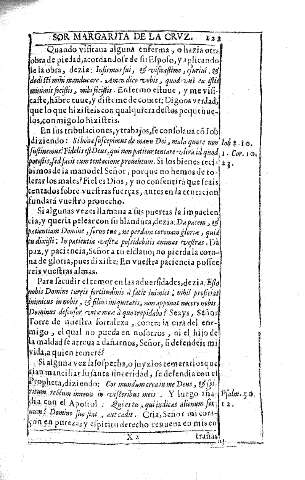 SOR MARGARITA DE LA CRVZ. 222
Quando visitaua alguna enferma, o hazia otra
obra de piedad, acordandose de su Esposo, y aplicando
le la obra, dezia: Infirmus fui, & visitastis me, esuriui, &
dedisti mihi manducare. Amen dico vobis, quod vni ex istis
minimis fecistis, mihi fecistis. Enfermo estuue, y me visi-
taste, hãbre tuue, y disteme de comer; Digo va verdad,
que lo que hizisteis con qualquiera destos pequeñue-
los, conmigo lo hizisteis.
En las tribulaciones, y trabajos, se consolaua cõ Iob
diziendo: Si bona suscepimus de manu Dei, mala quare non
sustineamus? Fidelis est Deus, qui non patietur tentare vos vltra id quod
potestis, sed faciet cum tentatione prouentum. Si los bienes recibi-
mos de la mano del Señor, porque no hemos de to-
lerar los males? Fiel es Dios, y no consentirà que seais
tentados sobre vuestras fuerças, antes en la tentacion
fundarà vuestro prouecho.
Iob 2. 10.
1. Cor. 10.
13.
Si algunas vezes llamaua a sus puertas la impacien
cia, y queria pelear con su blandura, dezia: Da pacem, &
patientiam Domine, seruo tuo, ne perdam coronam gloriæ, quia
tu dixisti: In patientia vestra possidebitis animas vestras. Dà
paz, y paciencia, Señor a tu esclauo, no pierda la coro-
na de gloria, pues dixiste: En vuestra paciencia posee-
reis vuestras almas.
Para sacudir el temor en las aduersidades, dezia: Esto
nobis Domine turris fortitudinis à facie inimici, nihil proficiat
inimicus in nobis, & filius iniquitatis, non apponat nocere nobis
Dominus defensor vitæ meæ à quo trepidabo? Seays, Señor
Torre de nuestra fortaleza, contra la cara del ene-
migo, el qual no pueda en nosotros, ni el hijo de
la maldad se atreua a dañarnos, Señor, si defendeis mi
vida, a quien temerè?
Si alguna vez la sospecha, o juyzios temerarios que
rian mancillar su santa sinceridad, se defendia con el
Propheta, diziendo: Cor mundum crea in me Deus, & spi-
ritum rectum innoua in visceribus meis. Y luego aña-
dia con el Apostol: Quis es tu, qui iudicas alienum ser-
uum? Domino suo stat, aut cadit. Cria, Señor mi cora-
çon en pureza, y espiritu derecho renueua en mis en
Psalm. 50.
12.
X 2 trañas